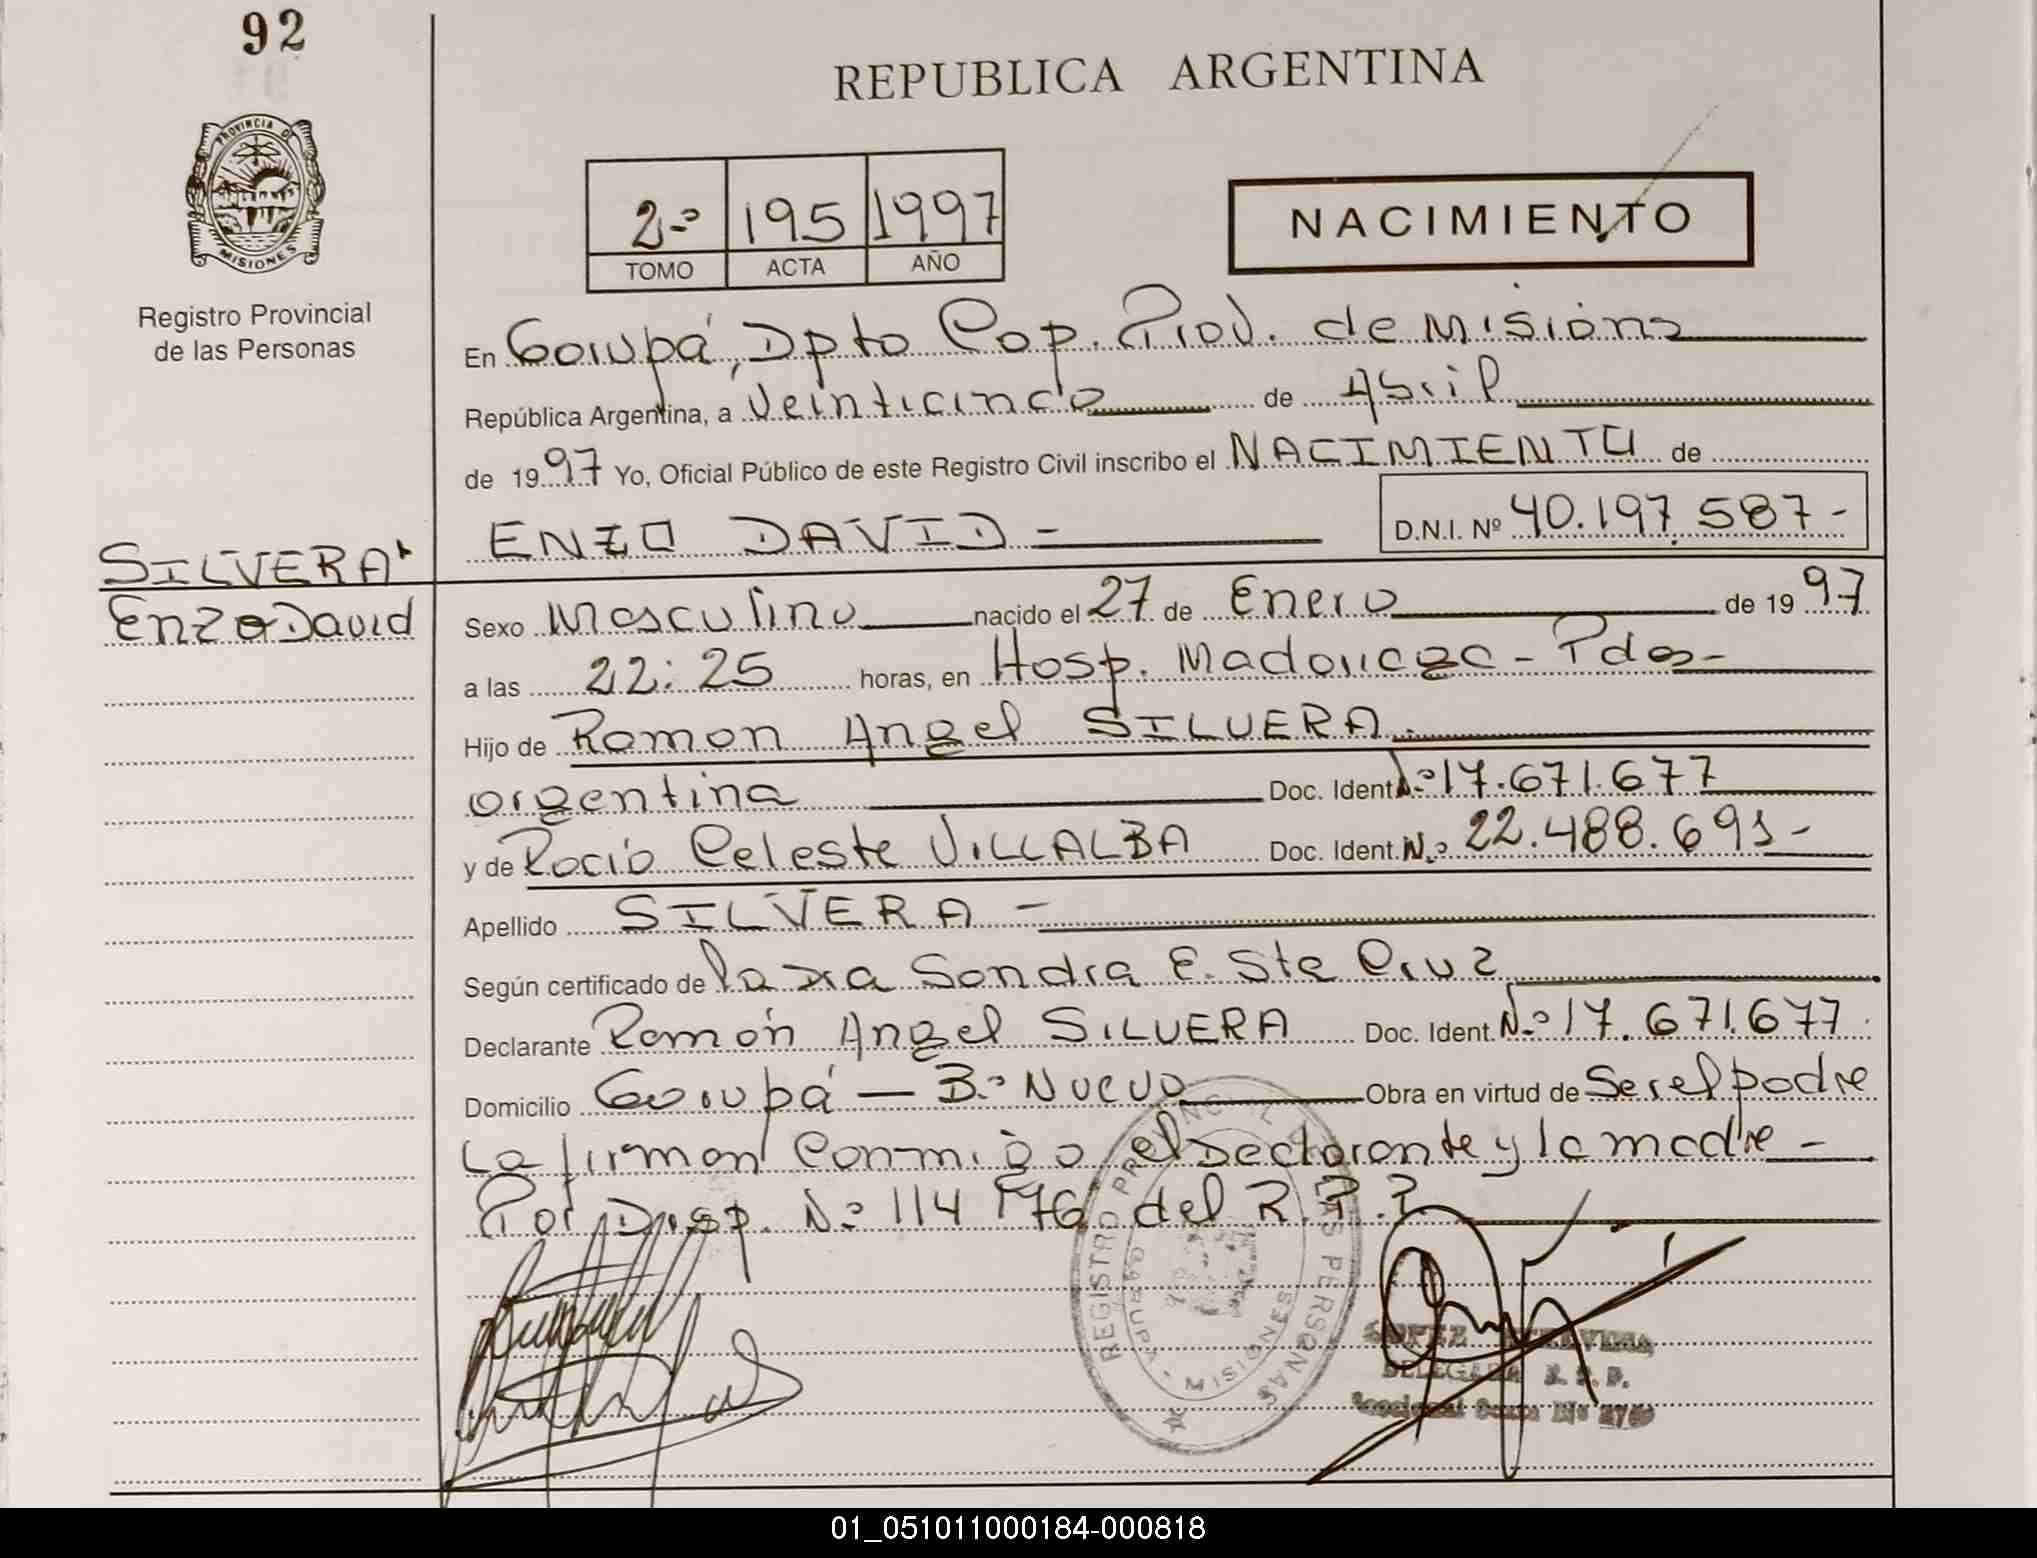 92
REPUBLICA ARGENTINA
PROVINCIA DE
MISIONES
Registro Provincial
de las Personas
2.º 195 1997
TOMO ACTA AÑO
NACIMIENTO
En Garupá, Dpto Cap. Prov. de Misiones
República Argentina, a Veinticinco de Abril
de 1997 Yo, Oficial Público de este Registro Civil inscribo el NACIMIENTO de
ENZO DAVID - D.N.I. Nº 40.197.587-
SILVERA
Enzo David
Sexo Masculino nacido el 27 de Enero de 1997
a las 22:25 horas, en Hosp. Madariaga - Pdas-
Hijo de Ramon Angel SILVERA
argentina Doc. Ident. Nº 17.671.677
y de Rocío Celeste VILLALBA Doc. Ident. Nº 22.488.691-
Apellido SILVERA -
Según certificado de la Dra Sandra E. Sta Cruz
Declarante Ramón Angel SILVERA Doc. Ident. Nº 17.671.677
Domicilio Garupá - Bº Nuevo Obra en virtud de Ser el padre
La firman conmigo el Declarante y la madre -
Por Disp. Nº 114/96 del R.P.P
REGISTRO PROVINCIAL DE LAS PERSONAS
GARUPA - MISIONES
LOPEZ
DELEGADA R. P. P.
01_051011000184-000818